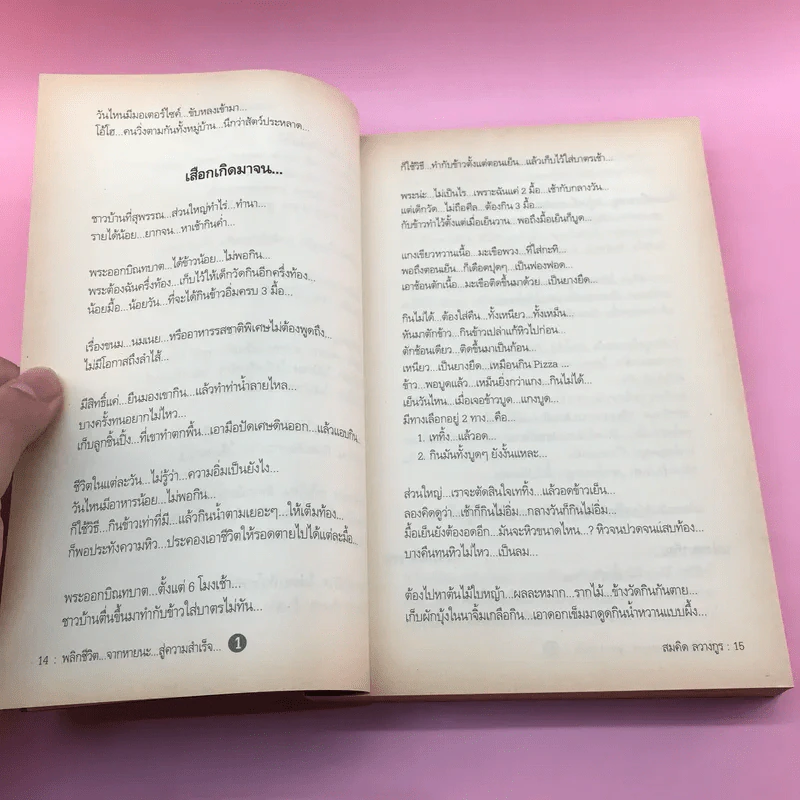 วันไหนมีมอเตอร์ไซค์...ขับหลงเข้ามา...
โอ้โฮ...คนวิ่งตามกันทั้งหมู่บ้าน...นึกว่าสัตว์ประหลาด...
เสือกเกิดมาจน...
ชาวบ้านที่สุพรรณ...ส่วนใหญ่ทำไร่...ทำนา...
รายได้น้อย...ยากจน...หาเช้ากินค่ำ...
พระออกบิณฑบาต...ได้ข้าวน้อย...ไม่พอกิน...
พระต้องฉันครึ่งท้อง...เก็บไว้ให้เด็กวัดกินอีกครึ่งท้อง...
น้อยมื้อ...น้อยวัน...ที่จะได้กินข้าวอิ่มครบ 3 มื้อ...
เรื่องขนม...นมเนย...หรืออาหารรสชาติพิเศษไม่ต้องพูดถึง...
ไม่มีโอกาสถึงลำไส้...
มีสิทธิ์แค่...ยืนมองเขากิน...แล้วทำท่าน้ำลายไหล...
บางครั้งทนอยากไม่ไหว...
เก็บลูกชิ้นปิ้ง...ที่เขาทำตกพื้น...เอามือปัดเศษดินออก...แล้วแอบกิน...
ชีวิตในแต่ละวัน...ไม่รู้ว่า...ความอิ่มเป็นยังไง...
วันไหนมีอาหารน้อย...ไม่พอกิน...
ก็ใช้วิธี...กินข้าวเท่าที่มี...แล้วกินน้ำตามเยอะๆ...ให้เต็มท้อง...
ก็พอประทังความหิว...ประคองเอาชีวิตให้รอดตายไปได้แต่ละมื้อ...
พระออกบิณฑบาต...ตั้งแต่ 6 โมงเช้า...
ชาวบ้านตื่นขึ้นมาทำกับข้าวใส่บาตรไม่ทัน...
14 : พลิกชีวิต...จากหายนะ...สู่ความสำเร็จ... 1
ก็ใช้วิธี...ทำกับข้าวตั้งแต่ตอนเย็น...แล้วเก็บไว้ใส่บาตรเช้า...
พระน่ะ...ไม่เป็นไร...เพราะฉันแค่ 2 มื้อ...เช้ากับกลางวัน...
แต่เด็กวัด...ไม่ถือศีล...ต้องกิน 3 มื้อ...
กับข้าวทำไว้ตั้งแต่เมื่อเย็นวาน...พอถึงมื้อเย็นก็บูด...
แกงเขียวหวานเนื้อ...มะเขือพวง...ที่ใส่กะทิ...
พอถึงตอนเย็น...ก็เดือดปุดๆ...เป็นฟองฟอด...
เอาช้อนตักเนื้อ...มะเขือติดขึ้นมาด้วย...เป็นยางยืด...
กินไม่ได้...ต้องใส่คืน...ทั้งเหนียว...ทั้งเหม็น...
หันมาตักข้าว...กินข้าวเปล่าแก้หิวไปก่อน...
ตักช้อนเดียว...ติดขึ้นมาเป็นก้อน...
เหนียว...เป็นยางยืด...เหมือนกิน Pizza ...
ข้าว...พอบูดแล้ว...เหม็นยิ่งกว่าแกง...กินไม่ได้...
เย็นวันไหน...เมื่อเจอข้าวบูด...แกงบูด...
มีทางเลือกอยู่ 2 ทาง...คือ...
1. เททิ้ง...แล้วอด...
2. กินมันทั้งบูดๆ ยังงั้นแหละ...
ส่วนใหญ่...เราจะตัดสินใจเททิ้ง...แล้วอดข้าวเย็น...
ลองคิดดูว่า...เช้าก็กินไม่อิ่ม...กลางวันก็กินไม่อิ่ม...
มื้อเย็นยังต้องอดอีก...มันจะหิวขนาดไหน...? หิวจนปวดจนแสบท้อง...
บางคืนทนหิวไม่ไหว...เป็นลม...
ต้องไปหาต้นไม้ใบหญ้า...ผลละหมาก...รากไม้...ข้างวัดกินกันตาย...
เก็บผักบุ้งในนาจิ้มเกลือกิน...เอาดอกเข็มมาดูดกินน้ำหวานแบบผึ้ง...
สมคิด ลวางกูร : 15